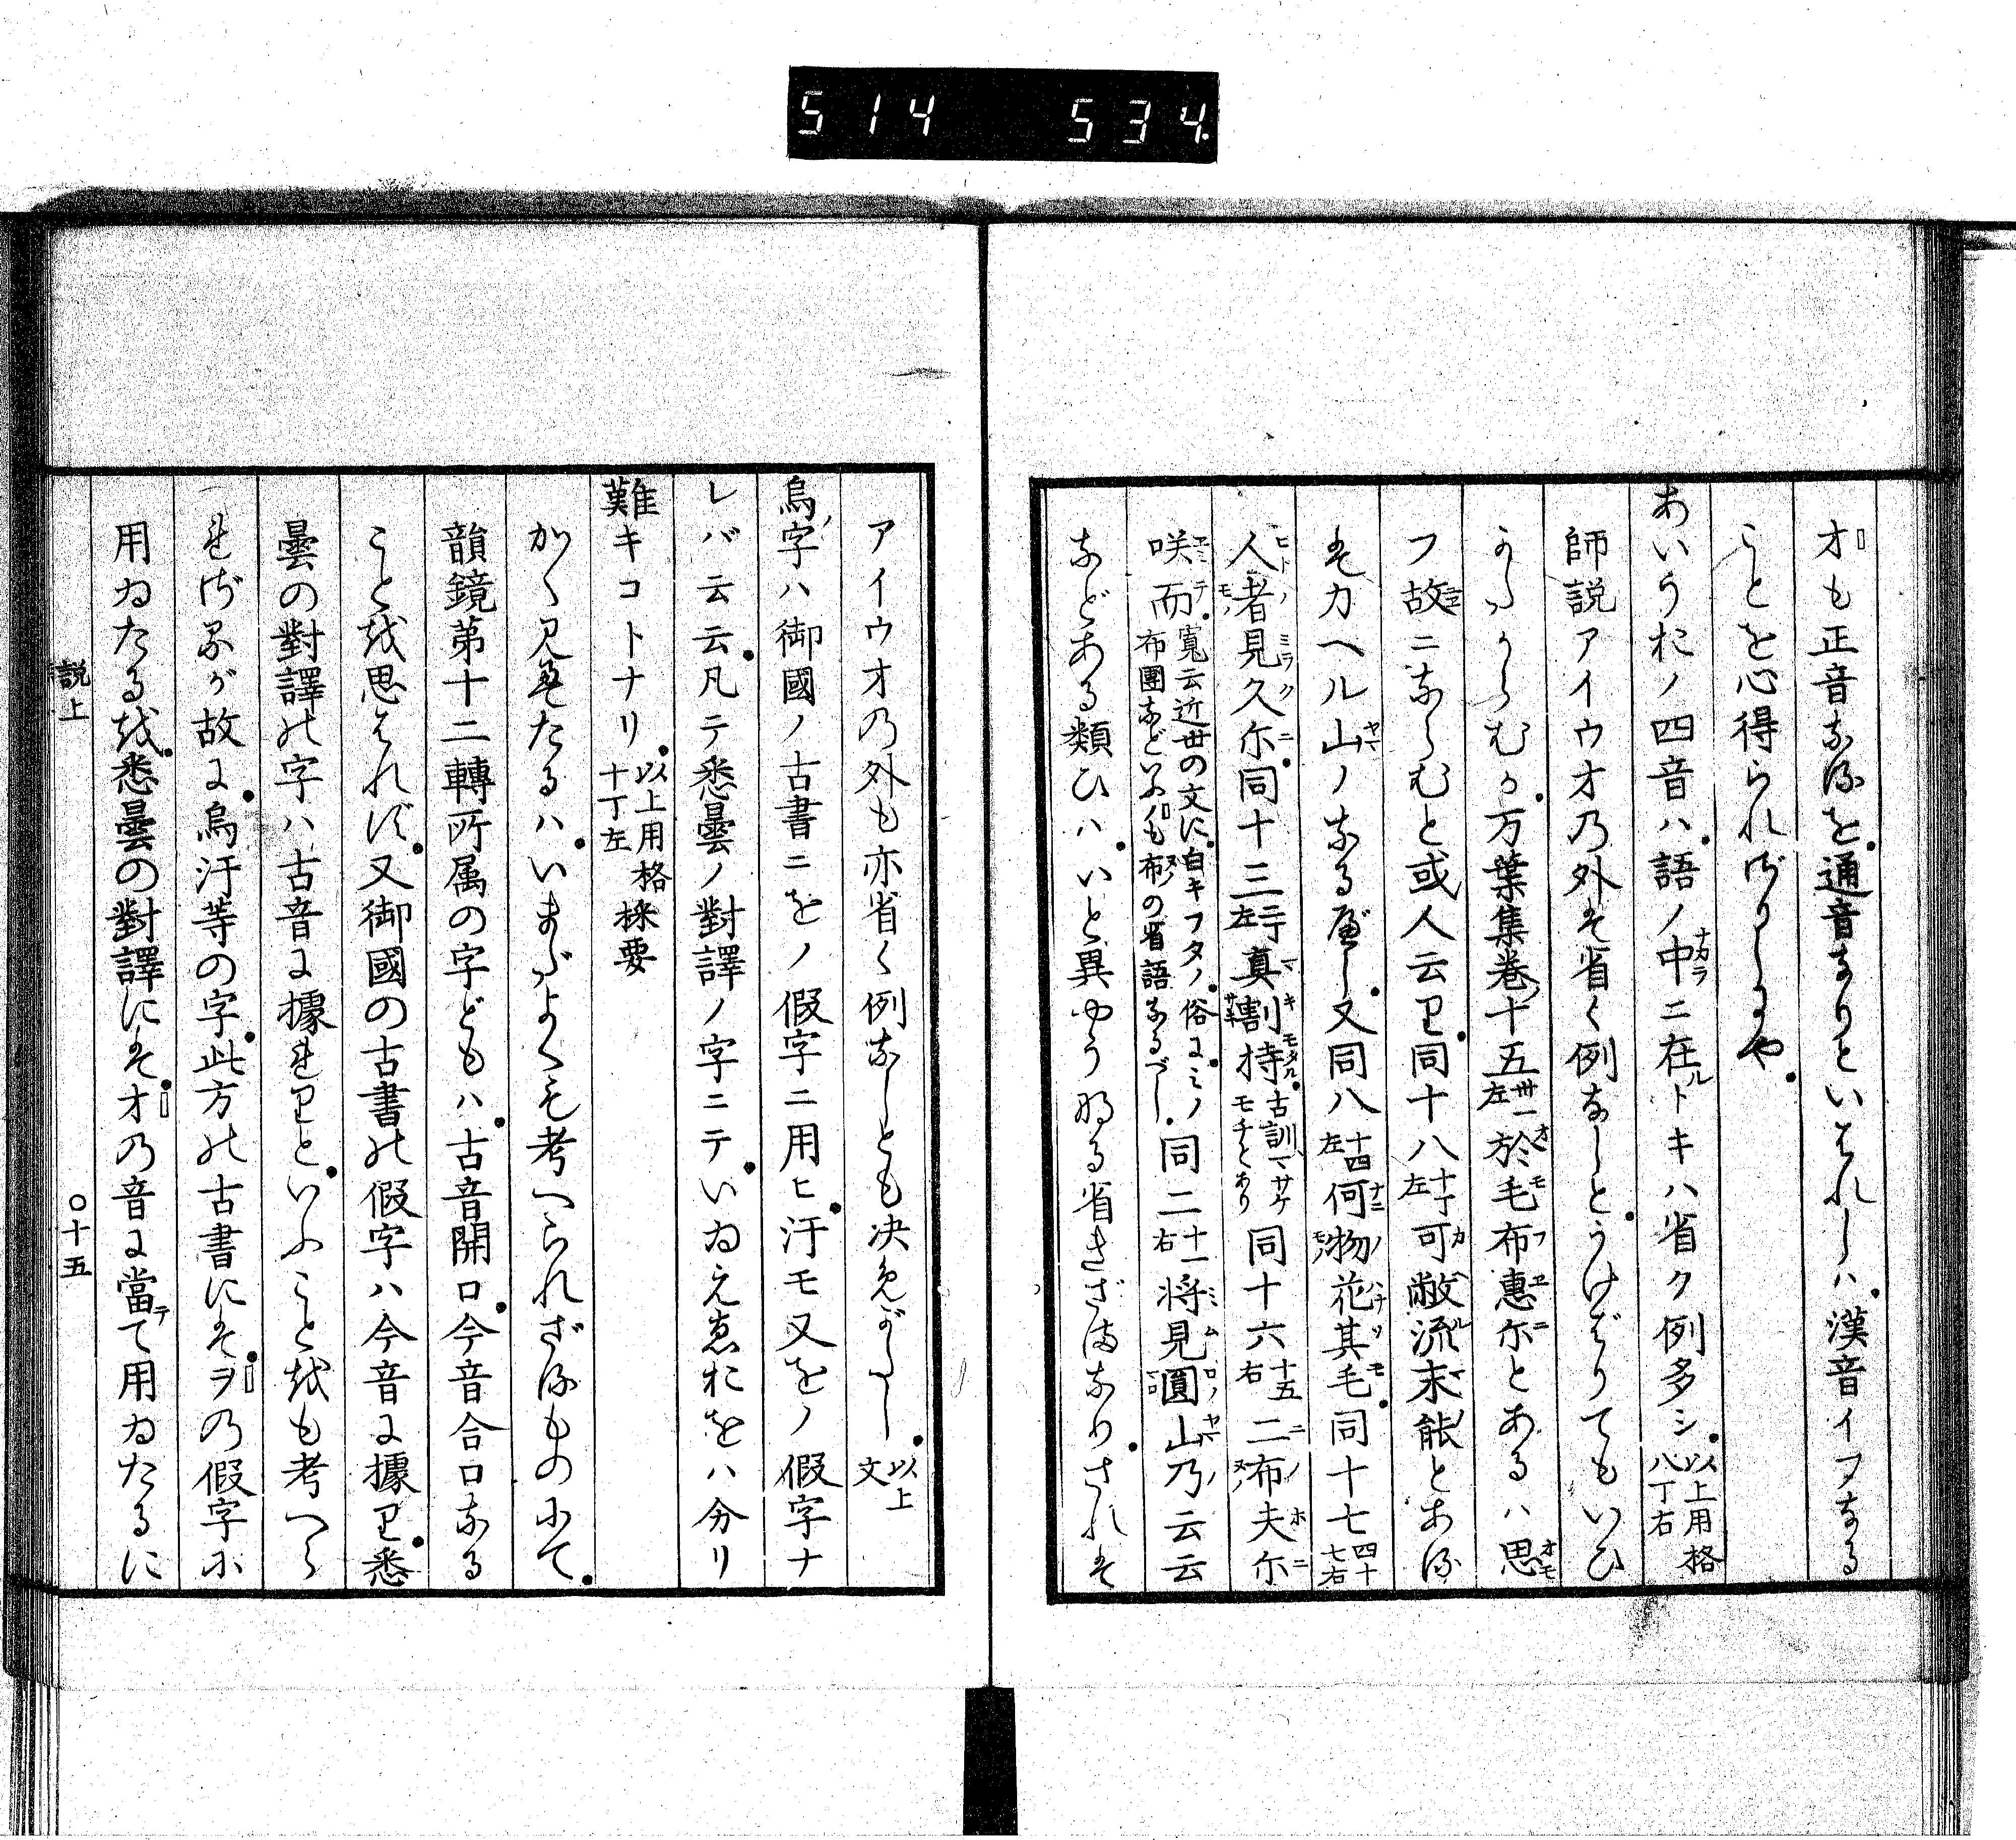 514 534
オも正音なるを通音なりといはれしハ漢音イフなる
ことを心得られざりしにや
あいうおノ四音ハ語ノ中ニ在ルトキハ省ク例多シ以上用格八丁右
師説アイウオの外は省く例なしとうけばりてもいひ
うたからむか万葉集巻十五卅一左於毛布惠尓とあるハ思
フ故ニならむと或人云り同十八十丁左可敝流末能とある
はカヘル山ノなるべし又同八十四左何物花其毛同十七四十七右
人者見久尓同十三二丁左真割持古訓マサケモチとあり同十六十五右二布夫尓
咲而寛云近世の文に白キフタノ俗にミノ布團などいふノも布の省語なるべし同二十一右将見圓山乃云云
などある類ひハいと異やうなる省きざまなりされは
アイウオの外も亦省く例なしとも决めがたし以上文
烏ノ字ハ御國ノ古書ニをノ假字ニ用ヒ汙モ又をノ假字ナ
レバ云云凡テ悉曇ノ對譯ノ字ニテいゐえゑおをハ分リ
難キコトナリ以上用格採要十丁左
かく見えたるハいまだよくも考へられざるものにて
韻鏡第十二轉所属の字どもハ古音開口今音合口なる
ことを思はれず又御國の古書の假字ハ今音に據り悉
曇の對譯の字ハ古音に據れりといふことをも考へら
れざるが故に烏汙等の字此方の古書にはヲの假字に
用ゐたるを悉曇の對譯にはオの音に當テて用ゐたるに
説上 〇十五